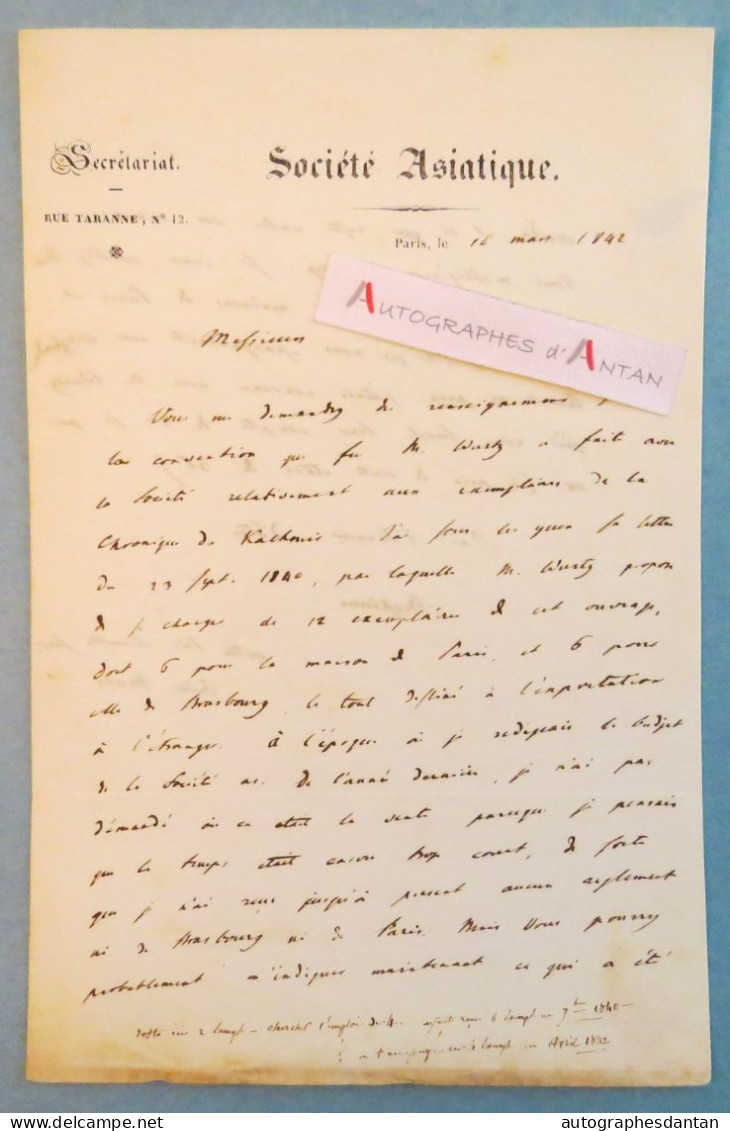 Secrétariat.
Société Asiatique.
RUE TARANNE, Nº 12.
Paris, le 16 mars 1842
AUTOGRAPHES d'ANTAN
Messieurs
Vous me demandez des renseignemens
la convention que feu M. Wurtz a fait avec
la Société relativement aux exemplaires de la
Chronique de Kachmir. J'ai sous les yeux sa lettre
du 23 Sept. 1840, par laquelle M. Wurtz propose
de se charger de 12 exemplaires de cet ouvrage,
dont 6 pour la maison de Paris, et 6 pour
celle de Strasbourg, le tout destiné à l'exportation
à l'étranger. À l'époque où je redigeais le budjet
de la Société as. de l'année dernière, je n'ai pas
demandé où en etait la vente parceque je pensais
que le temps etait encore trop court, de sorte
que je n'ai reçu jusqu'à present aucun reglement
ni de Strasbourg ni de Paris. Mais Vous pourrez
probablement m'indiquer maintenant ce qui a été
reste 2 - chercher l'emploi de 4. ayant reçu 6 en 7bre 1840 -
en April 1842
autographesdantan.com